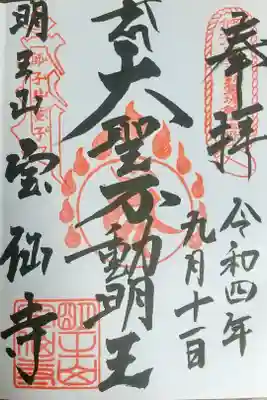 奉拝
令和四年
九月十一日
大聖不動明王
明王山
宝仙寺